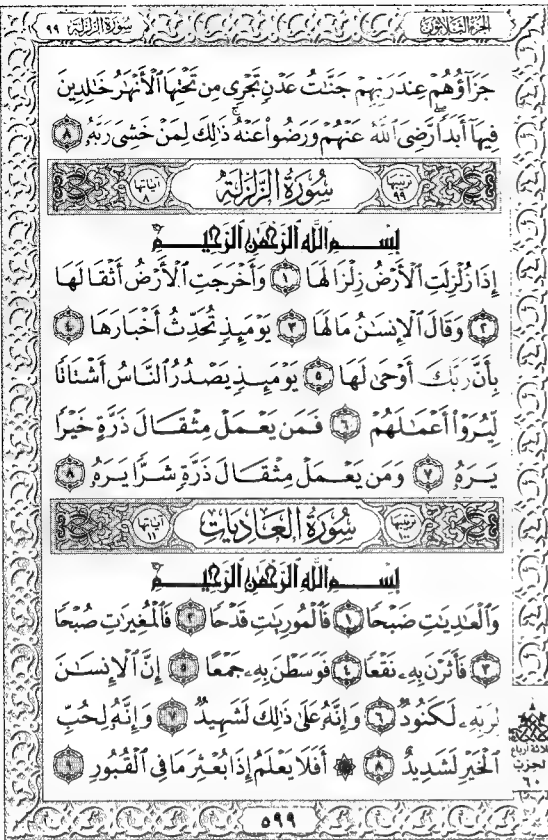 الجزء الثلاثون
سورة الزلزلة ٩٩
جَزَآؤُهُمْ عِندَ رَبِّهِمْ جَنَّـٰتُ عَدْنٍ تَجْرِى مِن تَحْتِهَا ٱلْأَنْهَـٰرُ خَـٰلِدِينَ
فِيهَآ أَبَدًا ۖ رَّضِىَ ٱللَّهُ عَنْهُمْ وَرَضُوا۟ عَنْهُ ۚ ذَٰلِكَ لِمَنْ خَشِىَ رَبَّهُۥ ٨
ترتيبها ٩٩ سُورَةُ الزَّلْزَلَةِ آياتها ٨
بِسْمِ ٱللَّهِ ٱلرَّحْمَـٰنِ ٱلرَّحِيمِ
إِذَا زُلْزِلَتِ ٱلْأَرْضُ زِلْزَالَهَا ١ وَأَخْرَجَتِ ٱلْأَرْضُ أَثْقَالَهَا
٢ وَقَالَ ٱلْإِنسَـٰنُ مَا لَهَا ٣ يَوْمَئِذٍ تُحَدِّثُ أَخْبَارَهَا ٤
بِأَنَّ رَبَّكَ أَوْحَىٰ لَهَا ٥ يَوْمَئِذٍ يَصْدُرُ ٱلنَّاسُ أَشْتَاتًا
لِّيُرَوْا۟ أَعْمَـٰلَهُمْ ٦ فَمَن يَعْمَلْ مِثْقَالَ ذَرَّةٍ خَيْرًا
يَرَهُۥ ٧ وَمَن يَعْمَلْ مِثْقَالَ ذَرَّةٍ شَرًّا يَرَهُۥ ٨
ترتيبها ١٠٠ سُورَةُ العَادِيَاتِ آياتها ١١
بِسْمِ ٱللَّهِ ٱلرَّحْمَـٰنِ ٱلرَّحِيمِ
وَٱلْعَـٰدِيَـٰتِ ضَبْحًا ١ فَٱلْمُورِيَـٰتِ قَدْحًا ٢ فَٱلْمُغِيرَٰتِ صُبْحًا
٣ فَأَثَرْنَ بِهِۦ نَقْعًا ٤ فَوَسَطْنَ بِهِۦ جَمْعًا ٥ إِنَّ ٱلْإِنسَـٰنَ
لِرَبِّهِۦ لَكَنُودٌ ٦ وَإِنَّهُۥ عَلَىٰ ذَٰلِكَ لَشَهِيدٌ ٧ وَإِنَّهُۥ لِحُبِّ
ٱلْخَيْرِ لَشَدِيدٌ ٨ ۞ أَفَلَا يَعْلَمُ إِذَا بُعْثِرَ مَا فِى ٱلْقُبُورِ ٩
ثلاثة أرباع
الحزب
٦٠
٥٩٩